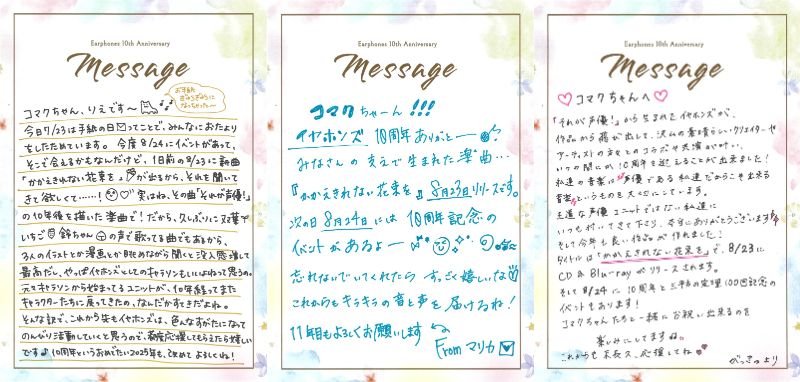 Earphones 10th Anniversary
Message
お手紙
ぎゅうぎゅうに
なっちゃったー
コマクちゃん、りえです〜
今日7/23は手紙の日ってことで、みんなにおたより
をしたためています。今度8/24にイベントがあって、
そこで会えるかもなんだけど、1日前の8/23に新曲
「かかえきれない花束を」が出るから、それを聞いて
きて欲しくて……!実はね、その曲「それが声優!」
の10年後を描いた楽曲で!だから、久しぶりに双葉
いちご鈴ちゃんの声で歌ってる曲でもあるから、
3人のイラストとか漫画とかBとみながら聞くと没入感増して
最高だし、やっぱイヤホンズとしてのキャラソンもいいよねって思うの。
元々キャラソンから始まってるユニットが、10年経ってまた
キャラクターたちに戻ってきたの、なんだかすきだよね。
そんな訳で、これから先もイヤホンズは、色んなすがたになって
のんびり活動していくと思うので、応援してもらえたら嬉しい
です 10周年というおめでたい2025年も、改めてよろしくね!
Earphones 10th Anniversary
Message
コマクちゃーん!!!
イヤホンズ 10周年ありがとー
みなさんの支えで生まれた楽曲…
『かかえきれない花束を』8月23日リリースです。
次の日 8月24日には 10周年記念の
イベントがあるよー
忘れないでいてくれたら すっごく嬉しいな
これからもキラキラの音と声を届けるね!
11年目もよろしくお願いします
From マリカ
Earphones 10th Anniversary
Message
コマクちゃんへ
「それが声優!」から生まれたイヤホンズが、
作品から飛び出して、沢山の素晴らしいクリエイターや
アーティストの方々とのコラボや共演が叶い、
いつの間にか!10周年を迎えることが出来ました!
私達の音楽は声優である私達だからこそ出来る
音楽というものを大切にしています。
王道な声優ユニットではない私達に
いつも付いてきて下さり、本当にありがとうございます
そして今年も良い作品が作れました!
タイトルは「かかえきれない花束を」で、8/23に
CD & Blu-rayがリリースされます。
そして8/24に10周年と三平方の定理100回記念の
イベントもあります!
コマクちゃんたちと一緒にお祝い出来るのを
楽しみにしてますね。
これからも末長く、応援してね
がっきゅより